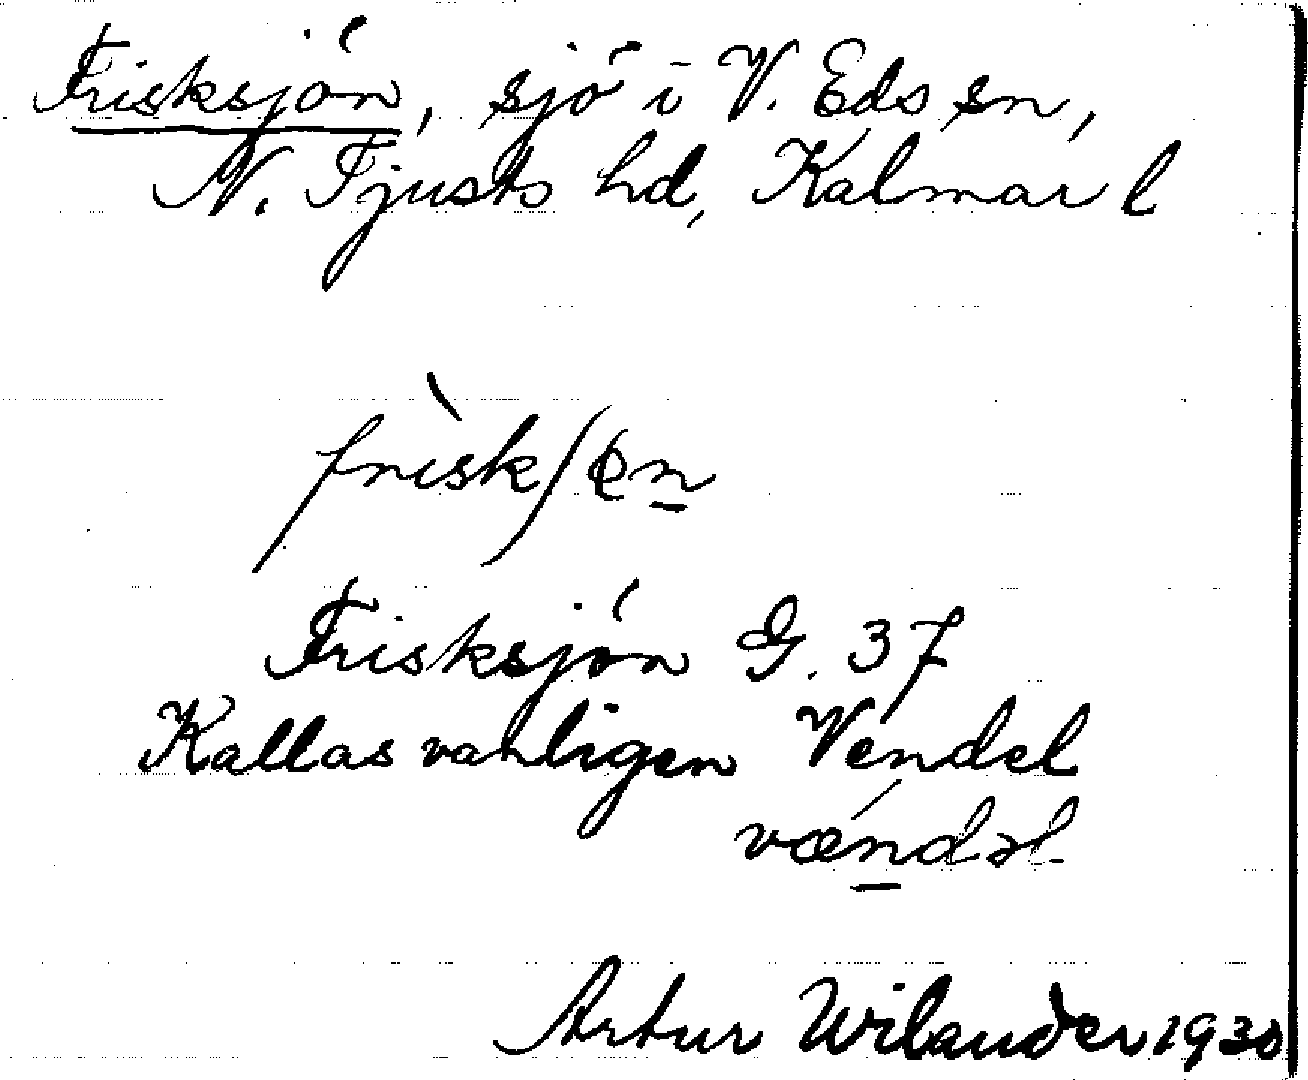 Frisksjön, sjö i V. Eds sn,
N. Tjusts hd, Kalmar l
frìskʃɵn̲
Frisksjön G. 37
Kallas vanligen Vendel
vǽn̲dəl
Artur Wilander 1930